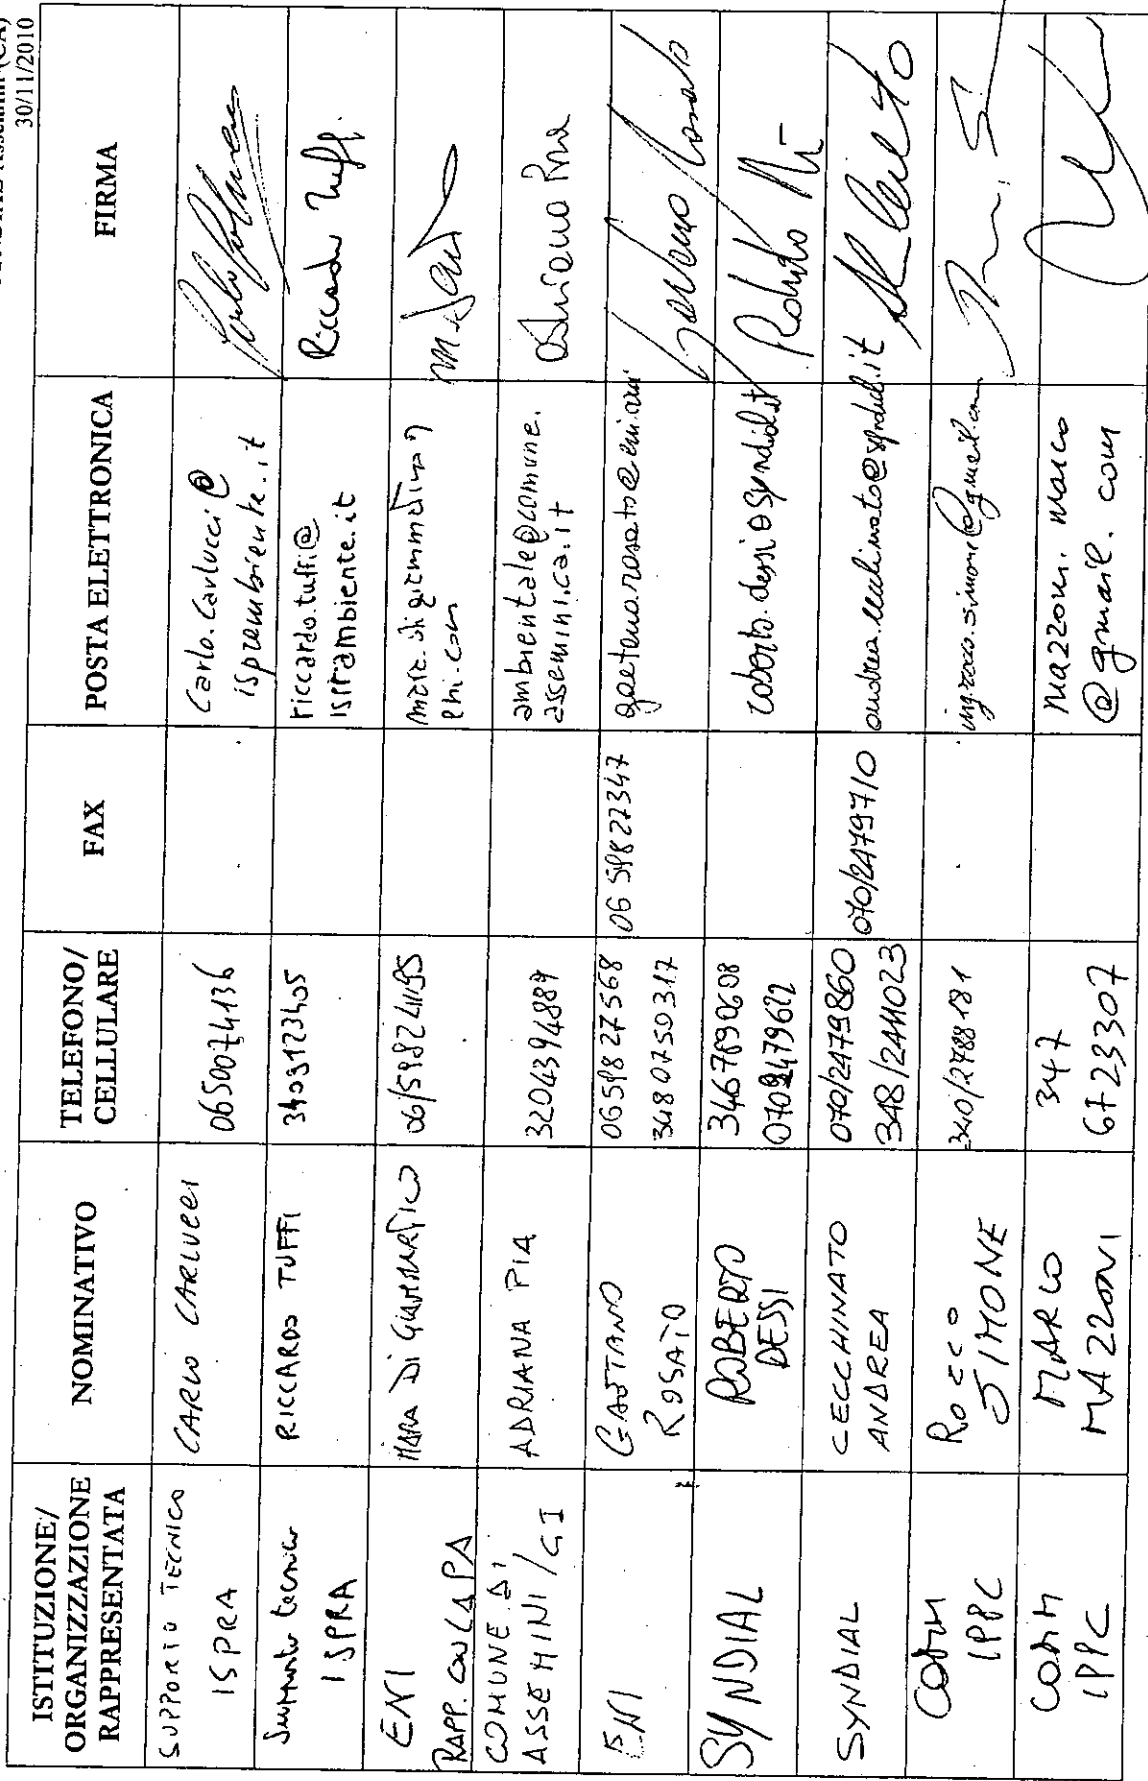 30/11/2010
ISTITUZIONE/
ORGANIZZAZIONE
RAPPRESENTATA
NOMINATIVO
TELEFONO/
CELLULARE
FAX
POSTA ELETTRONICA
FIRMA
SUPPORTO TECNICO
ISPRA
CARLO CARLUCCI
0650074136
Carlo.Carlucci@
isprambiente.it
tecnico
ISPRA
RICCARDO TUFFI
3403123405
riccardo.tuffi@
isprambiente.it
Riccardo Tuffi
ENI
RAPP. CON LA PA
MARA Di
06/59824195
eni.com
COMUNE DI
ASSEMINI/CI
ADRIANA PIA
3204394889
ambientale@comune.
assemini.ca.it
Adriana Pia
ENI
GAETANO
ROSATO
0659827568
3480750317
0659822347
gaetano.rosato@eni.com
Gaetano Rosato
SYNDIAL
ROBERTO
DESSI
3467890608
0702479622
roberto.dessi@syndial.it
Roberto
SYNDIAL
CECCHINATO
ANDREA
070/2479860
348/2411023
070/2479710
andrea.cecchinato@syndial.it
COMM
IPPC
ROCCO
SIMONE
340/2788181
ing.rocco.simone@gmail.com
COMM
IPPC
MARCO
MAZZONI
347
6723307
mazzoni.marco
@gmail.com